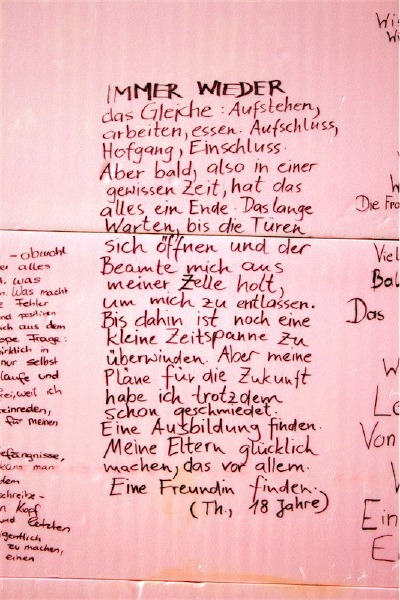 IMMER WIEDER
das Gleiche: Aufstehen,
arbeiten, essen. Aufschluss,
Hofgang, Einschluss.
Aber bald, also in einer
gewissen Zeit, hat das
alles ein Ende. Das lange
Warten, bis die Türen
sich öffnen und der
Beamte mich aus
meiner Zelle holt,
um mich zu entlassen.
Bis dahin ist noch eine
kleine Zeitspanne zu
überwinden. Aber meine
Pläne für die Zukunft
habe ich trotzdem
schon geschmiedet.
Eine Ausbildung finden.
Meine Eltern glücklich
machen, das vor allem.
Eine Freundin finden.
(Th., 18 Jahre)
- obwohl
alles
was
Was macht
Fehler
und positiven
ich aus dem
Frage:
wirklich in
nur selbst
laufe und
frei, weil ich
einreden,
für meinen
efängnisse,
kann man
dem
schreibe -
Kopf
und letzten
eigentlich
zu machen,
einen
Die Fra
Viel
Bal
Das
Von
Ein